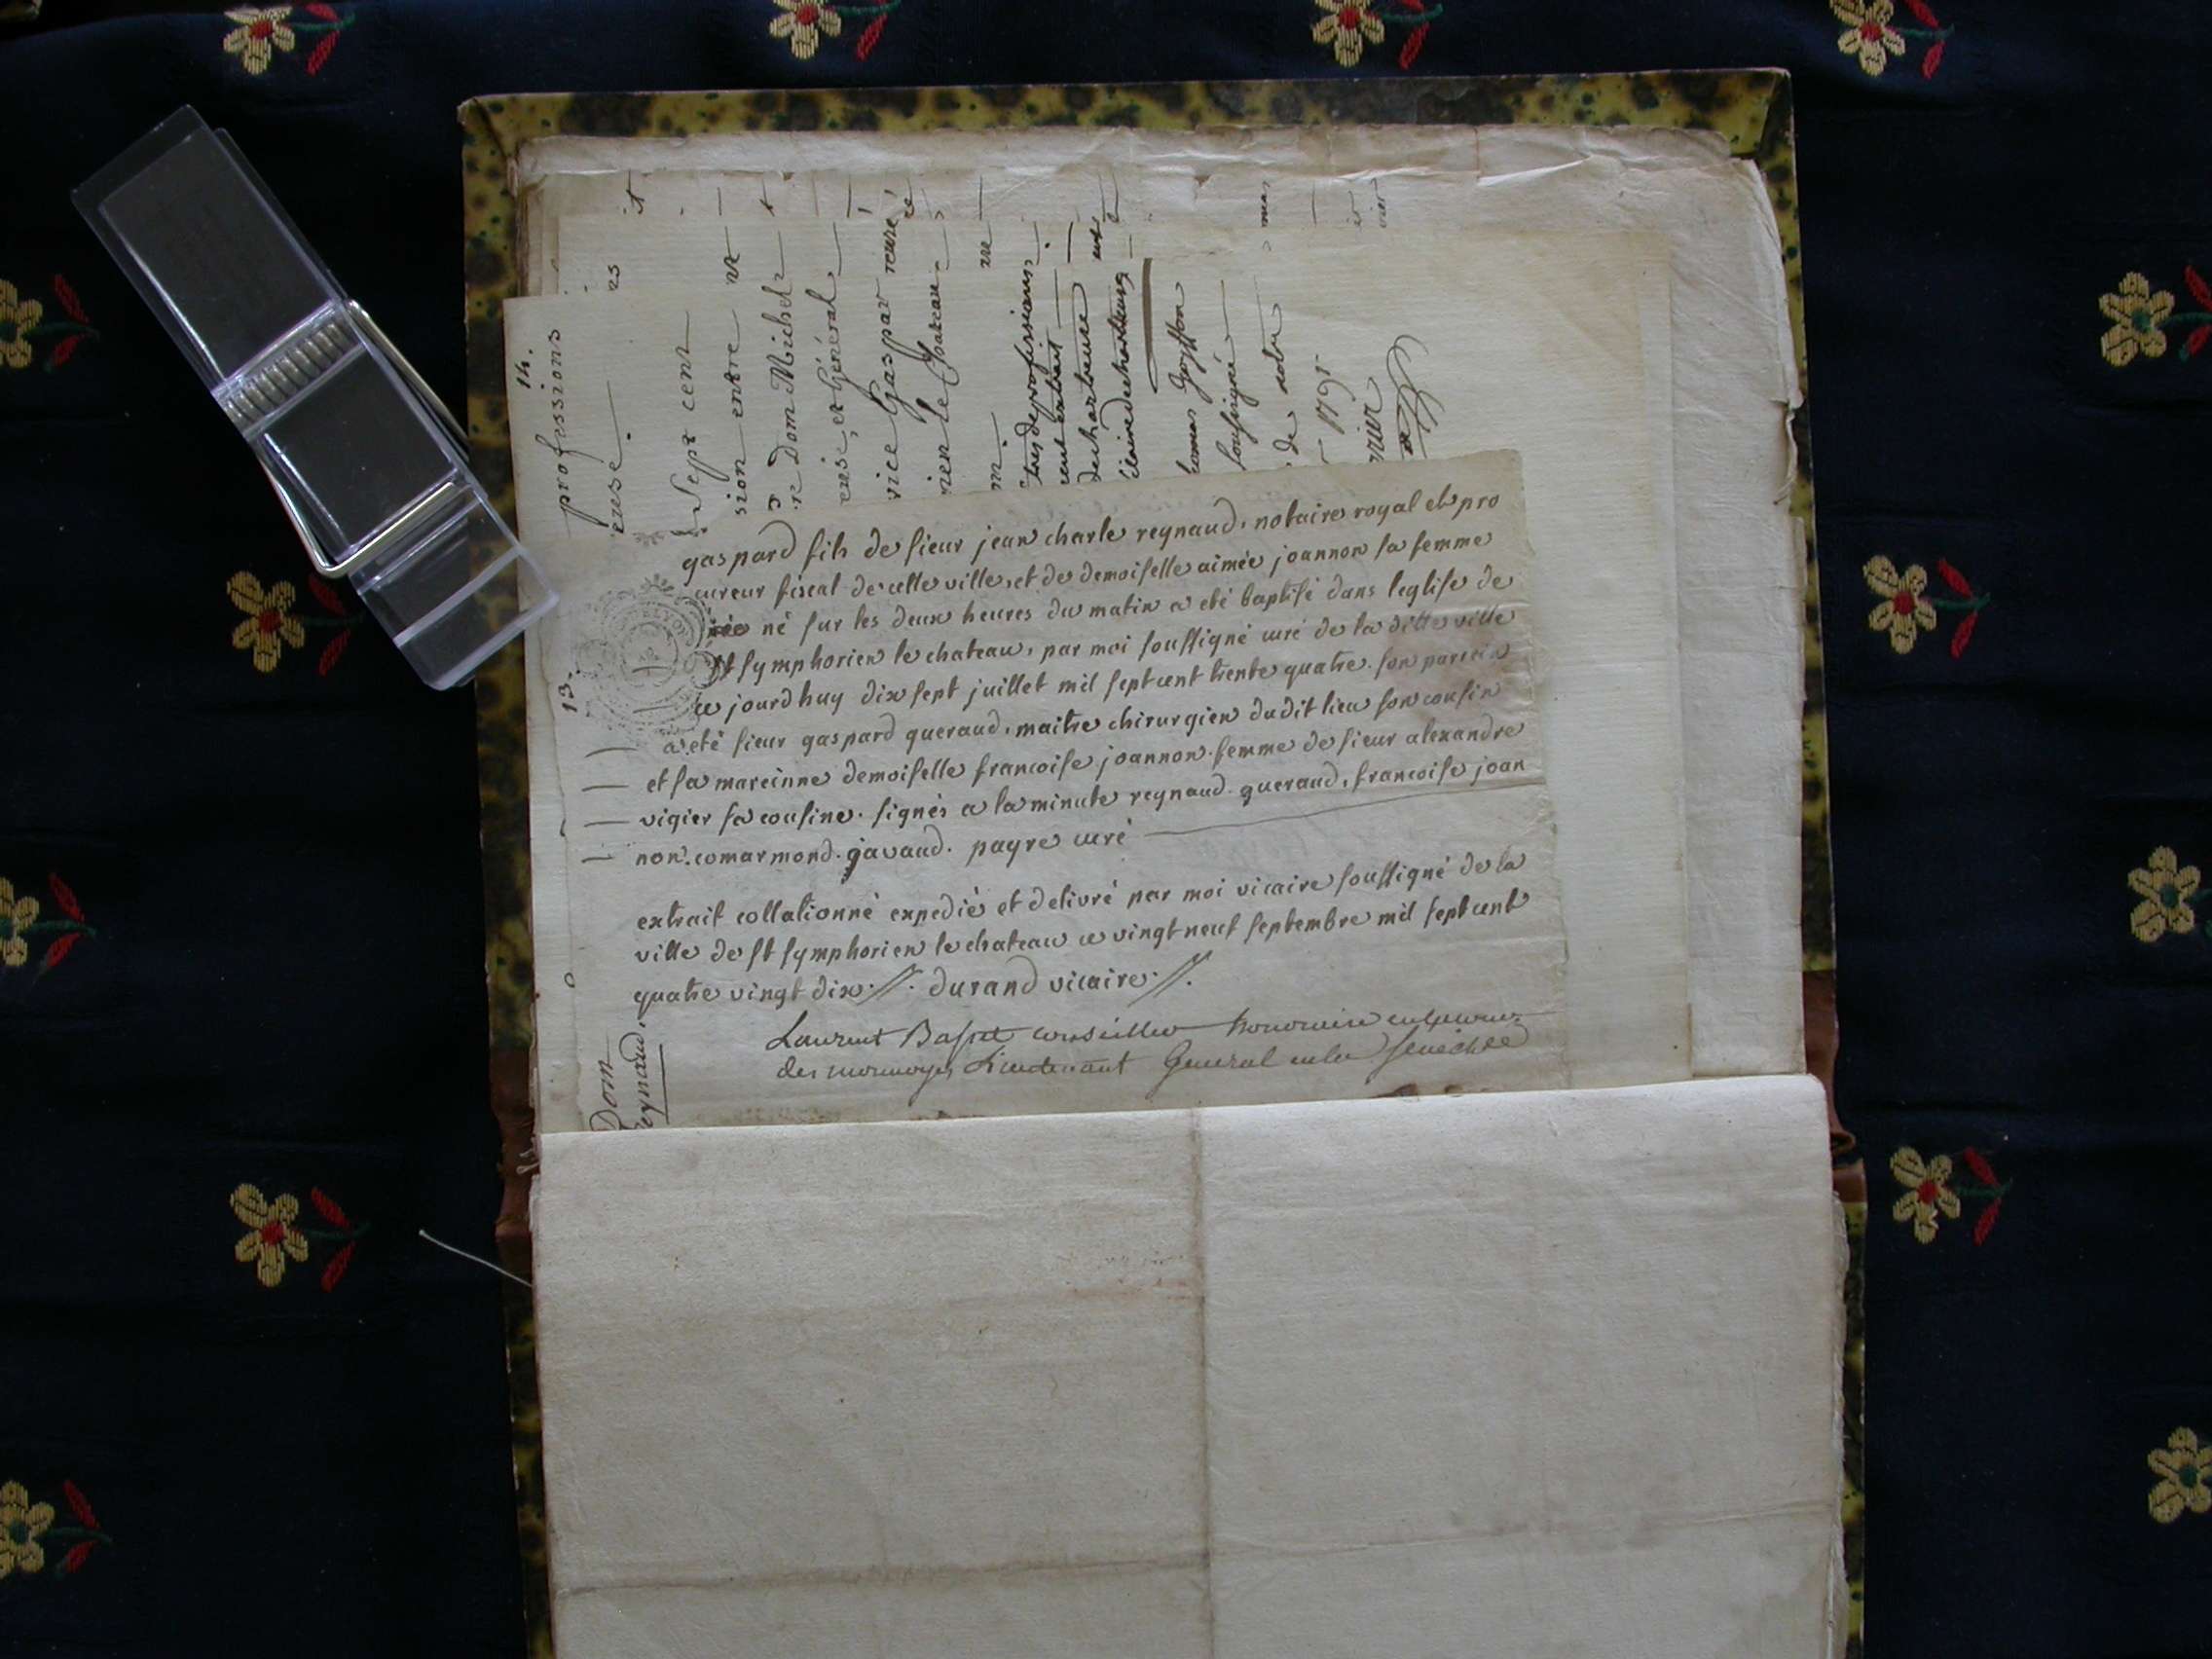 gaspard fils de sieur jean charle reynaud, notaire royal et pro
cureur fiscal de cette ville, et de demoiselle aimée joannon sa femme
né sur les deux heures du matin a eté baptisé dans leglise de
st symphorien le chateau, par moi soussigné curé de la ditte ville
ce jourdhuy dix sept juillet mil sept cent trente quatre. son parrein
a eté sieur gaspard gueraud, maitre chirurgien dudit lieu son cousin
et sa mareinne demoiselle francoise joannon femme de sieur alexandre
vigier sa cousine. signés a la minute reynaud. gueraud, francoise joan
non. comarmond. gavaud. payre curé
extrait collationné expedié et delivré par moi vicaire soussigné de la
ville de st symphorien le chateau ce vingt neuf septembre mil sept cent
quatre vingt dix //. durand vicaire //.
Laurent Basset conseiller honoraire en la cour
des monnoyes Lieutenant General en la senechée
14.
professions
euse.
Sept cent
sion entre
re Dom Michel
euse, et Général
vice Gaspar
rien le Chateau
tres de professions
cent extrait
de chartreuse
soussigné
de notre
1791
13.
Dom
Reynaud,